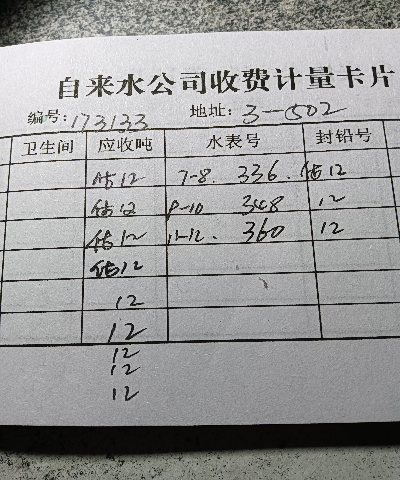 自来水公司收费计量卡片
编号:173133 地址:3-502
卫生间 应收吨 水表号 封铅号
估12 7-8. 336. 估12
估12 9-10 348 12
估12 11-12. 360 12
估12
12
12
12
12
12